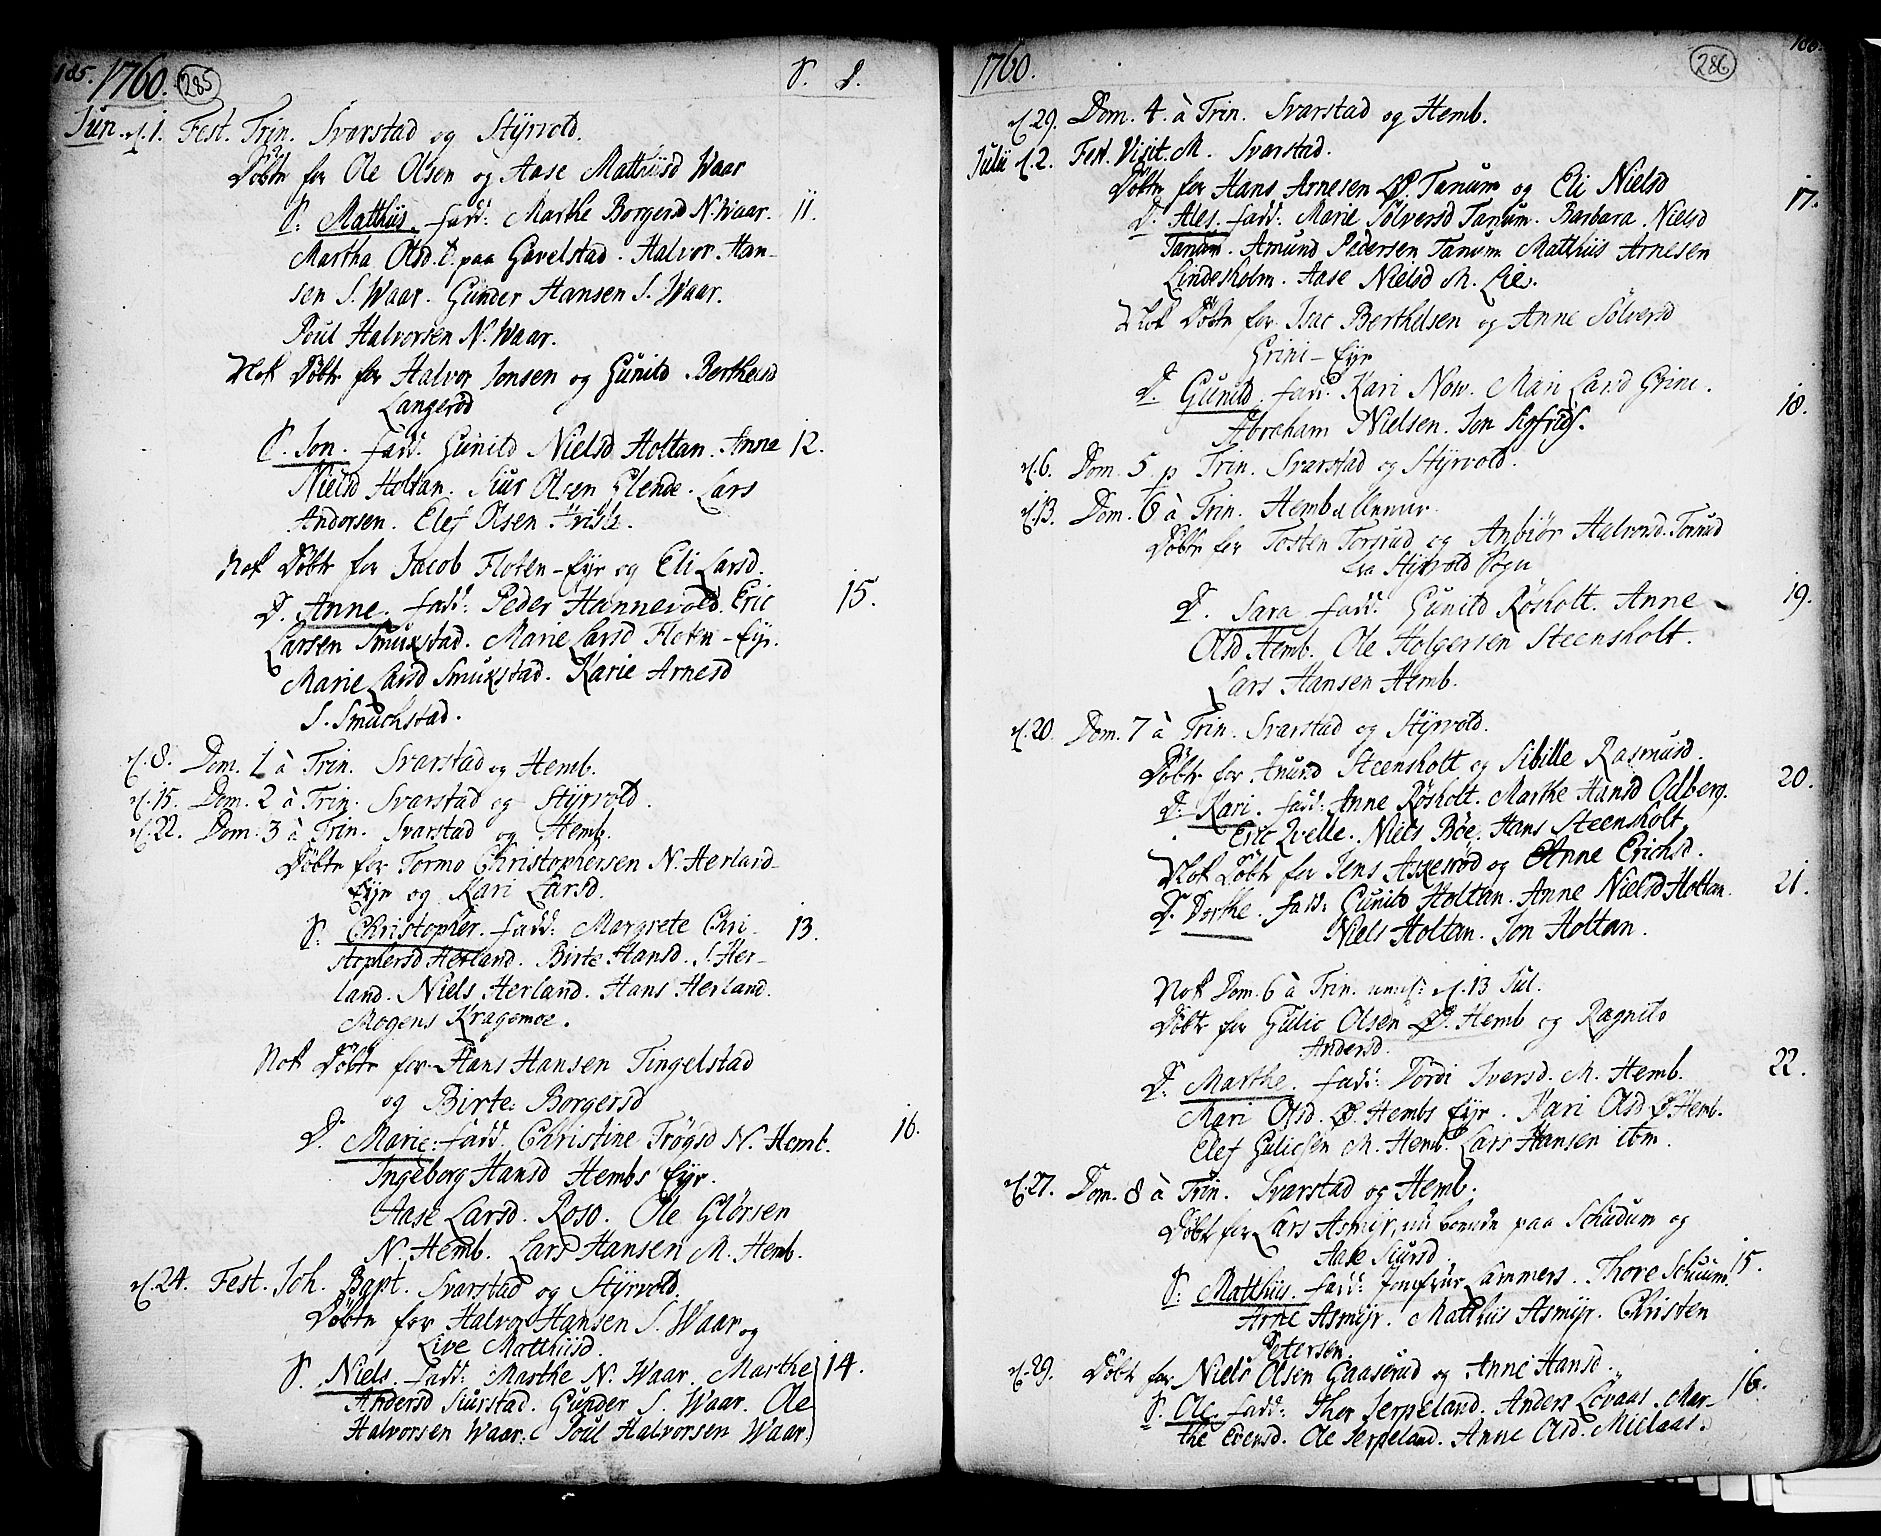 185. 1760. 285 S. D.
Jun. d. 1. Fest. Trin. Svarstad og Styrvold.
Döbte for Ole Olsen og Aase Matthiisd Waar
S: Matthiis. fadd: Marthe Borgersd N. Waar. 11.
Martha Olsd. t. paa Gavelstad. Halvor Han-
sen S. Waar. Gunder Hansen S. Waar.
Poul Halvorsen N. Waar.
Nok Döbte for Halvor Jonsen og Gunild Berthelsd
Langeröd
S. Jon. fadd. Gunild Nielsd Holtan. Anna 12.
Nielsd Holtan. Siur Olsen Glende. Lars
Andersen. Elef Olsen
Nok Döbte for Jacob Floten-Eyr og Eli Larsd.
D. Anne. fadd: Peder Hannevold. Eric 15.
Larsen Smukstad. Marie Larsd Floten-Eyr.
Marie Larsd Smukstad. Karie Arnesd
S. Smuchstad.
d. 8. Dom. 1 à Trin. Svarstad og Hemb.
d. 15. Dom. 2 à Trin. Svarstad og Styrvold.
d. 22. Dom. 3 à Trin. Svarstad og Hemb.
Döbte for Tormo Christophersen N. Herland-
Eyr og Kari Larsd.
S: Christopher. fadd: Margrete Chri- 13.
stophersd Herland. Birte Hansd. S. Her-
land. Niels Herland. Hans Herland.
Mogens Kragemoe.
Nok Döbte for Hans Hansen Tingelstad
og Birte Borgersd
D. Marie. fadd. Christine Trögsd N. Hemb. 16.
Ingeborg Hansd Hembs Eyr.
Aase Larsd. Roso. Ole Glörsen
N. Hemb. Lars Hansen M. Hemb.
d. 24. Fest. Joh. Bapt. Svarstad og Styrvold.
Döbte for Halvor Hansen S. Waar og
Live Matthiisd.
S. Niels. fadd: Marthe N. Waar. Marthe 14.
Andersd Siurstad. Gunder S. Waar. Ole
Halvorsen Waar. Poul Halvorsen Waar.
1760. 286 186.
d. 29. Dom. 4. à Trin. Svarstad og Hemb.
Julii d. 2. Fest. Visit. M. Svarstad.
Döbte for Hans Arnesen Ö. Tanum og Eli Nielsd
D: Ales. fadd: Marie Sölversd Tanum. Barbara Nielsd 17.
Tanum. Amund Pedersen Tanum Matthiis Arnesen
Lindesholm. Aase Nielsd M. Lie.
Nok Döbte for Isac Berthelsen og Anne Sölversd
Grini-Eyr
D. Gunild. fadd. Kari Now. Mari Larsd Grini. 18.
Abraham Nielsen. Jon Sigfrids.
d. 6. Dom. 5 p Trin. Svarstad og Styrvold.
d. 13. Dom. 6 à Trin. Hemb
Döbte for Tosten Torsrud og Anbiör Halvorsd. Torsrud
fra Styrvold Sogn
D. Sara fadd. Gunild Rösholt. Anne 19.
Olsd Hemb. Ole Holgersen Steensholt.
Lars Hansen Hemb.
d. 20. Dom. 7 à Trin. Svarstad og Styrvold.
Döbte for Anund Steensholt og Sibille Rasmusd.
D: Kari. fadd: Anne Rösholt. Marthe Hansd Odberg. 20.
Eric Qvelle. Niels Böe. Hans Steensholt
Nok Döbte for Jens Askeröd og Anne Erichsd.
D. Dorthe. fadd: Gunild Holtan. Anne Nielsd Holtan. 21.
Niels Holtan. Jon Holtan.
Nok Dom. 6 à Trin. d. 13 Jul.
Döbte for Gulic Olsen Ö. Hemb og Ragnild
Andersd.
D: Marthe. fadd: Tordi Iversd. M. Hemb. 22.
Mari Olsd. Ö. Hembs Eyr. Kari Olsd Ö. Hemb.
Elef Gulicsen M. Hemb. Lars Hansen ibm.
d. 27. Dom. 8 à Trin. Svarstad og Hemb.
Döbt for Lars Asmyr, nu boende paa Schudum og
Aase Siursd.
S: Matthiis. fadd: Jomfrue Lammers. Thore 15.
Arne Asmyr. Matthiis Asmyr. Christen
Petersen.
d. 29. Döbt for Niels Olsen Gaaserud og Anne Hansd.
S. Ole. fadd: Sher Serpeland. Anders Lövaas. Mar- 16.
the Edersd. Ole Serpeland. Anne Olsd. Mielaas.